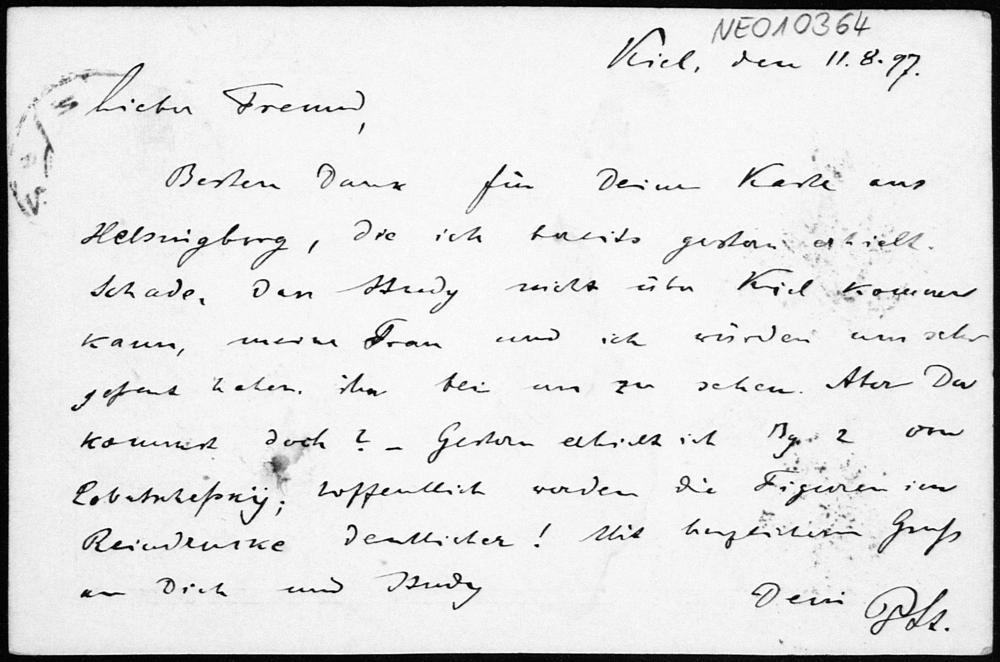 NE010364
Kiel, den 11.8.97.
Lieber Freund,
Besten Dank für Deine Karte aus
Helsingborg, die ich bereits gestern erhielt.
Schade, dass Study nicht über Kiel kommen
kann, meine Frau und ich würden uns sehr
gefreut haben, ihn bei uns zu sehen. Aber Du
kommst doch? – Gestern erhielt ich Bg. 2 von
Lobatschefskij; hoffentlich werden die Figuren im
Reindrucke deutlicher! Mit herzlichem Gruß
an Dich und Study
Dein PSt.